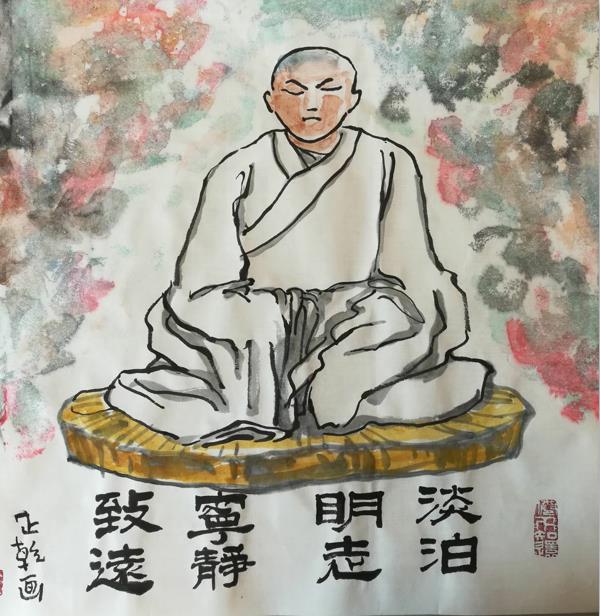 淡泊
明志
寧靜
致遠
正乾画